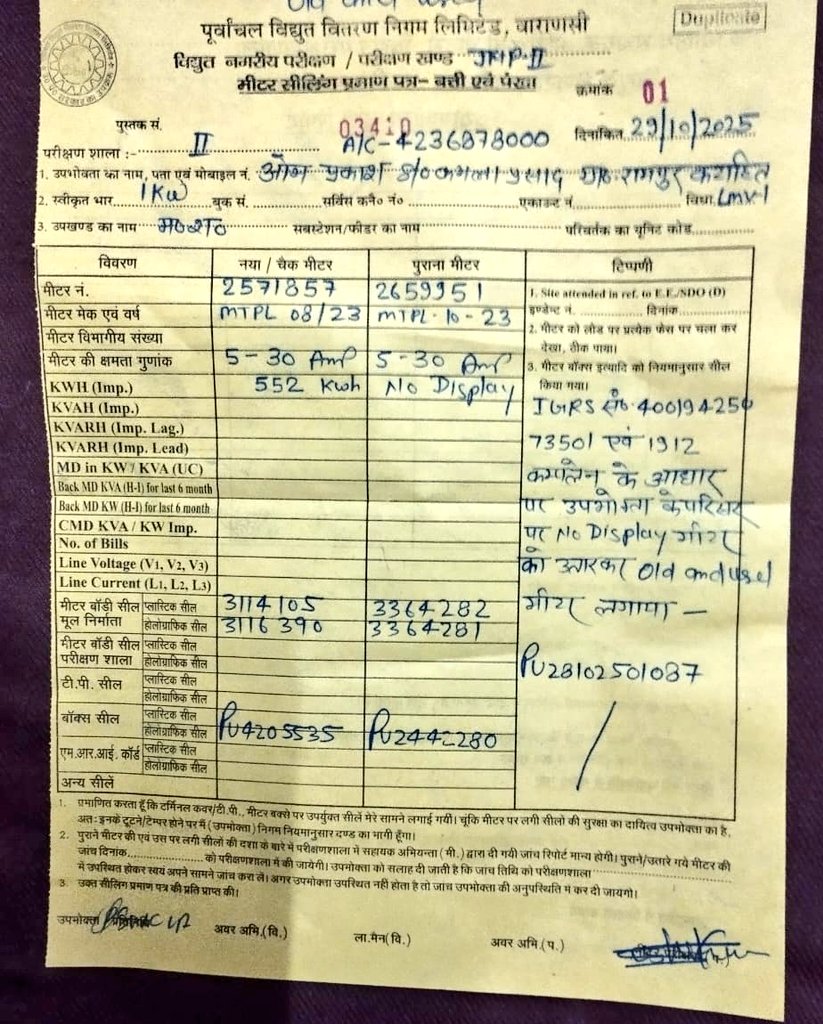 पूर्वांचल विद्युत वितरण निगम लिमिटेड, वाराणसी
Duplicate
विद्युत नगरीय परीक्षण / परीक्षण खण्ड
मीटर सीलिंग प्रमाण पत्र– बत्ती एवं पंखा
क्रमांक 01
पुस्तक सं. 03410
परीक्षण शाला :- II A/C-4236878000 दिनांकित 29/10/2025
1. उपभोक्ता का नाम, पता एवं मोबाइल नं. ओम प्रकाश S/o कमला प्रसाद रामपुर
2. स्वीकृत भार 1KW बुक सं. सर्विस कनै० नं० एकाउन्ट नं. विधा LMV-1
3. उपखण्ड का नाम सबस्टेशन/फीडर का नाम परिवर्तक का यूनिट कोड
विवरण नया / चैक मीटर पुराना मीटर टिप्पणी
मीटर नं. 2571857 2659951
1. Site attended in ref. to E.E./SDO (D)
इण्डेन्ट नं. दिनांक
मीटर मेक एवं वर्ष MTPL 08/23 MTPL-10-23
मीटर विभागीय संख्या
2. मीटर को लोड पर प्रत्येक फेस पर चला कर
देखा, ठीक पाया।
मीटर की क्षमता गुणांक 5-30 Amp 5-30 Amp
3. मीटर बॉक्स इत्यादि को नियमानुसार सील
किया गया।
KWH (Imp.) 552 Kwh No Display
KVAH (Imp.)
IGRS सं० 400194250
KVARH (Imp. Lag.)
KVARH (Imp. Lead)
73501 एवं 1912
MD in KW / KVA (UC)
कम्पलेन के आधार
Back MD KVA (H-I) for last 6 month
Back MD KW (H-I) for last 6 month
पर उपभोक्ता के परिसर
CMD KVA / KW Imp.
पर No Display मीटर
No. of Bills
Line Voltage (V1, V2, V3)
को उतारकर Old and used
Line Current (L1, L2, L3)
मीटर बॉडी सील मूल निर्माता प्लास्टिक सील 3114105 3364282
मीटर लगाया –
होलोग्राफिक सील 3116390 3364281
मीटर बॉडी सील परीक्षण शाला प्लास्टिक सील
होलोग्राफिक सील
PU28102501087
टी.पी. सील प्लास्टिक सील
होलोग्राफिक सील
बॉक्स सील प्लास्टिक सील
होलोग्राफिक सील PU4205535 PU2442280
एम.आर.आई. कॉर्ड प्लास्टिक सील
होलोग्राफिक सील
अन्य सीलें
1. प्रमाणित करता हूँ कि टर्मिनल कवर/टी.पी., मीटर बक्से पर उपर्युक्त सीलें मेरे सामने लगाई गयीं। चूंकि मीटर पर लगी सीलों की सुरक्षा का दायित्व उपभोक्ता का है,
अतः इनके टूटने/टेम्पर होने पर मैं (उपभोक्ता) निगम नियमानुसार दण्ड का भागी हूँगा।
2. पुराने मीटर की एवं उस पर लगी सीलों की दशा के बारे में परीक्षणशाला में सहायक अभियन्ता (मी.) द्वारा दी गयी जांच रिपोर्ट मान्य होगी। पुराने/उतारे गये मीटर की
जांच दिनांक को परीक्षणशाला में की जायेगी। उपभोक्ता को सलाह दी जाती है कि जांच तिथि को परीक्षणशाला
में उपस्थित होकर स्वयं अपने सामने जांच करा लें। अगर उपभोक्ता उपस्थित नहीं होता है तो जांच उपभोक्ता की अनुपस्थिति में कर दी जायगो।
3. उक्त सीलिंग प्रमाण पत्र की प्रति प्राप्त की।
उपभोक्ता अवर अभि.(वि.) ला.मैन(वि.) अवर अभि.(प.)